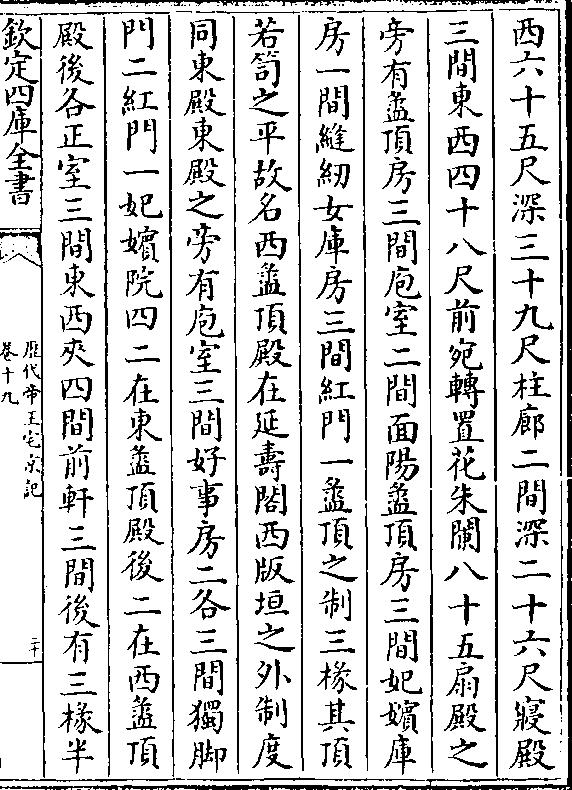 西六十五尺深三十九尺柱廊二間深二十六尺寢殿
三間東西四十八尺前宛轉置花朱闌八十五扇殿之
旁有盝頂房三間庖室二間面陽盝頂房三間妃嬪庫
房一間縫紉女庫房三間紅門一盝頂之制三椽其頂
若笥之平故名西盝頂殿在延壽閣西版垣之外制度
同東殿東殿之旁有庖室三間好事房二各三間獨脚
門二紅門一妃嬪院四二在東盝頂殿後二在西盝頂
殿後各正室三間東西夾四間前軒三間後有三椽半
欽定四庫全書
歷代帝王宅京記
卷十九
二十